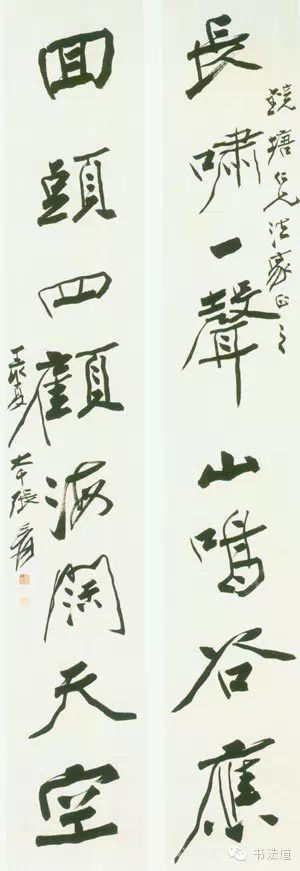 長嘯一聲山鳴谷應
鏡塘仁兄法家正之
回頭四顧海闊天空
夏大千張爰
书法道